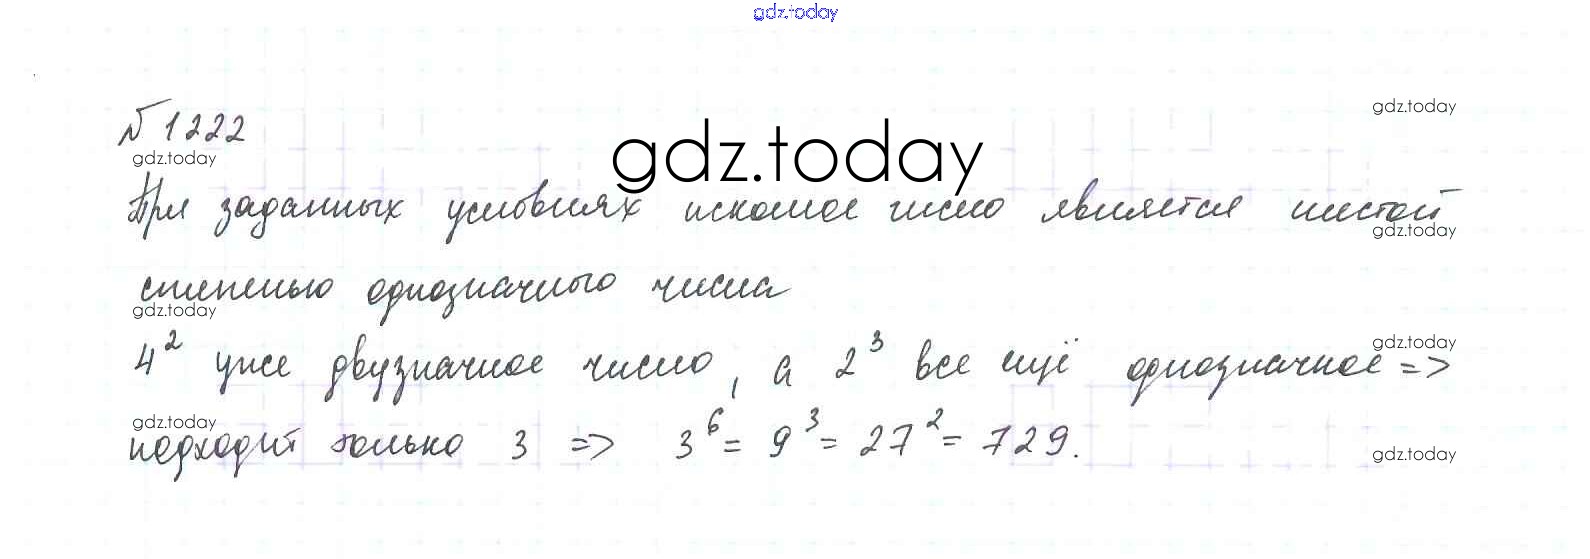 gdz.today
gdz.today
№ 1222
gdz.today
gdz.today
При заданных условиях искомое число является шестой
gdz.today
степенью однозначного числа
gdz.today
4² уже двузначное число, а 2³ все ещё однозначное =>
gdz.today
gdz.today
подходит только 3 => 3⁶ = 9³ = 27² = 729.
gdz.today